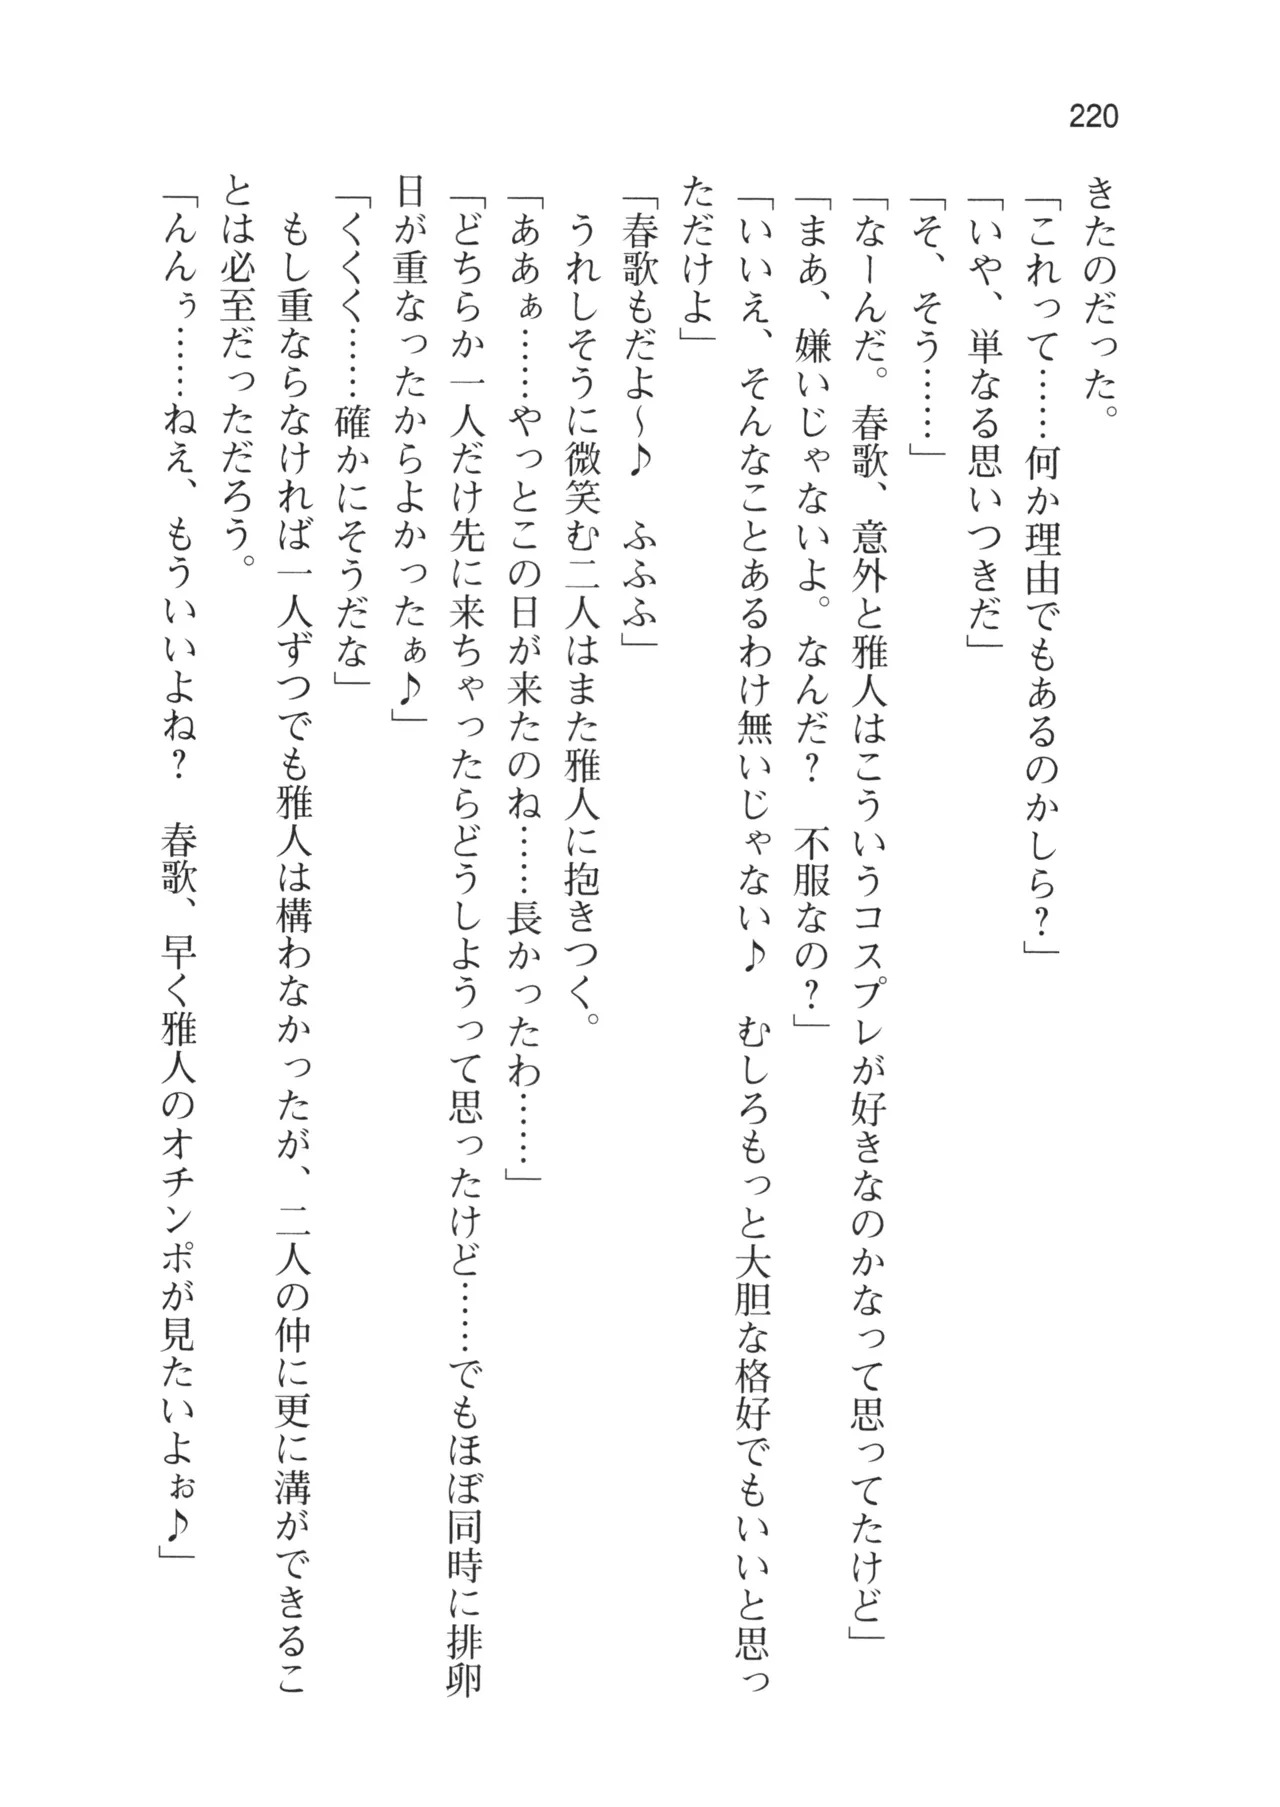 220
きたのだった。
「これって……何か理由でもあるのかしら？」
「いや、単なる思いつきだ」
「そ、そう……」
「なーんだ。春歌、意外と雅人はこういうコスプレが好きなのかなって思ってたけど」
「まあ、嫌いじゃないよ。なんだ？　不服なの？」
「いいえ、そんなことあるわけ無いじゃない♪　むしろもっと大胆な格好でもいいと思っ
ただけよ」
「春歌もだよ～♪　ふふふ」
　うれしそうに微笑む二人はまた雅人に抱きつく。
「ああぁ……やっとこの日が来たのね……長かったわ……」
「どちらか一人だけ先に来ちゃったらどうしようって思ったけど……でもほぼ同時に排卵
日が重なったからよかったぁ♪」
「くくく……確かにそうだな」
　もし重ならなければ一人ずつでも雅人は構わなかったが、二人の仲に更に溝ができるこ
とは必至だっただろう。
「んんぅ……ねえ、もういいよね？　春歌、早く雅人のオチンポが見たいよぉ♪」